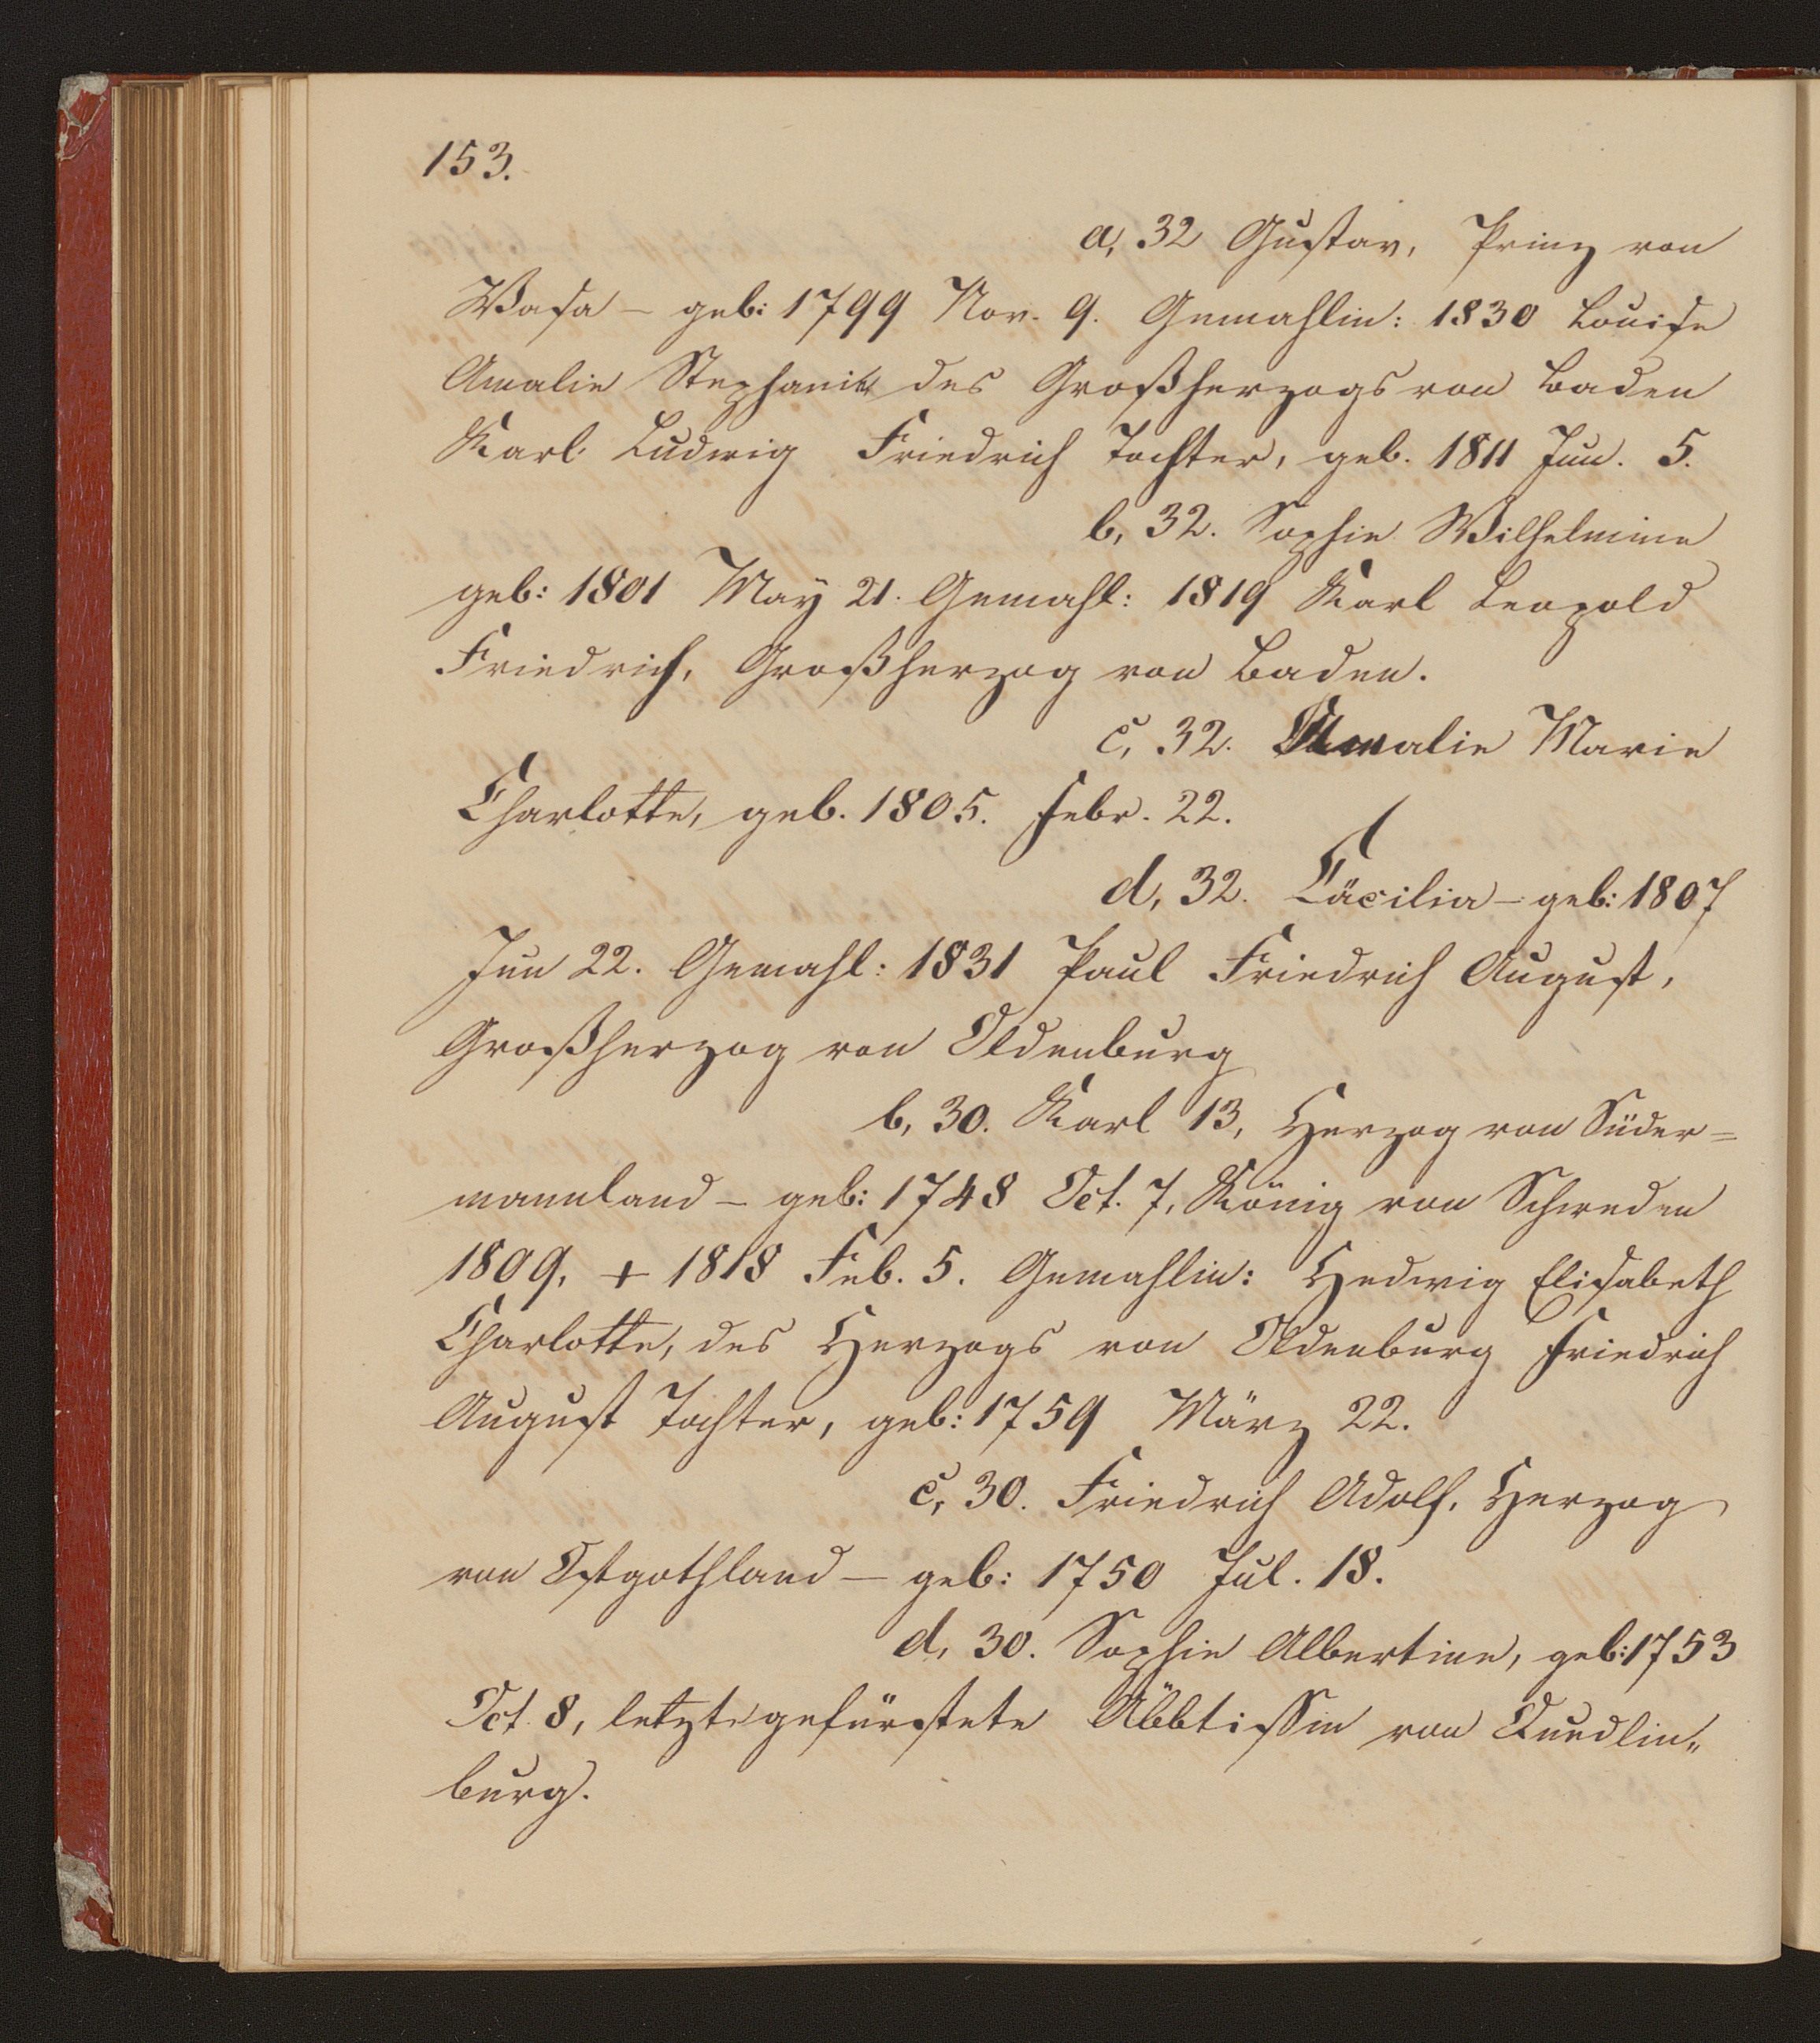 153.
a, 32 Gustav, Prinz von
Wasa – geb: 1799 Nov. 9. Gemahlin: 1830 Louise
Amalie Stephanie des Großherzogs von Baden
Karl Ludwig Friedrich Tochter, geb. 1811 Jun. 5.
b, 32. Sophie Wilhelmine
geb: 1801 May 21. Gemahl: 1819 Karl Leopold
Friedrich, Großherzog von Baden.
c, 32. Amalie Marie
Charlotte, geb. 1805. Febr. 22.
d, 32. Cäcilia – geb: 1807
Jun 22. Gemahl: 1831 Paul Friedrich August,
Großherzog von Oldenburg
b, 30. Karl 13, Herzog von Süder=
mannland – geb: 1748 Oct. 7, König von Schweden
1809, + 1818 Feb. 5. Gemahlin: Hedwig Elisabeth
Charlotte, des Herzogs von Oldenburg Friedrich
August Tochter, geb: 1759 März 22.
c, 30. Friedrich Adolf, Herzog
von Ostgothland – geb: 1750 Jul. 18.
d, 30. Sophie Albertine, geb: 1753
Oct. 8, letzte gefürstete Äbbtissin von Quedlin„
burg.